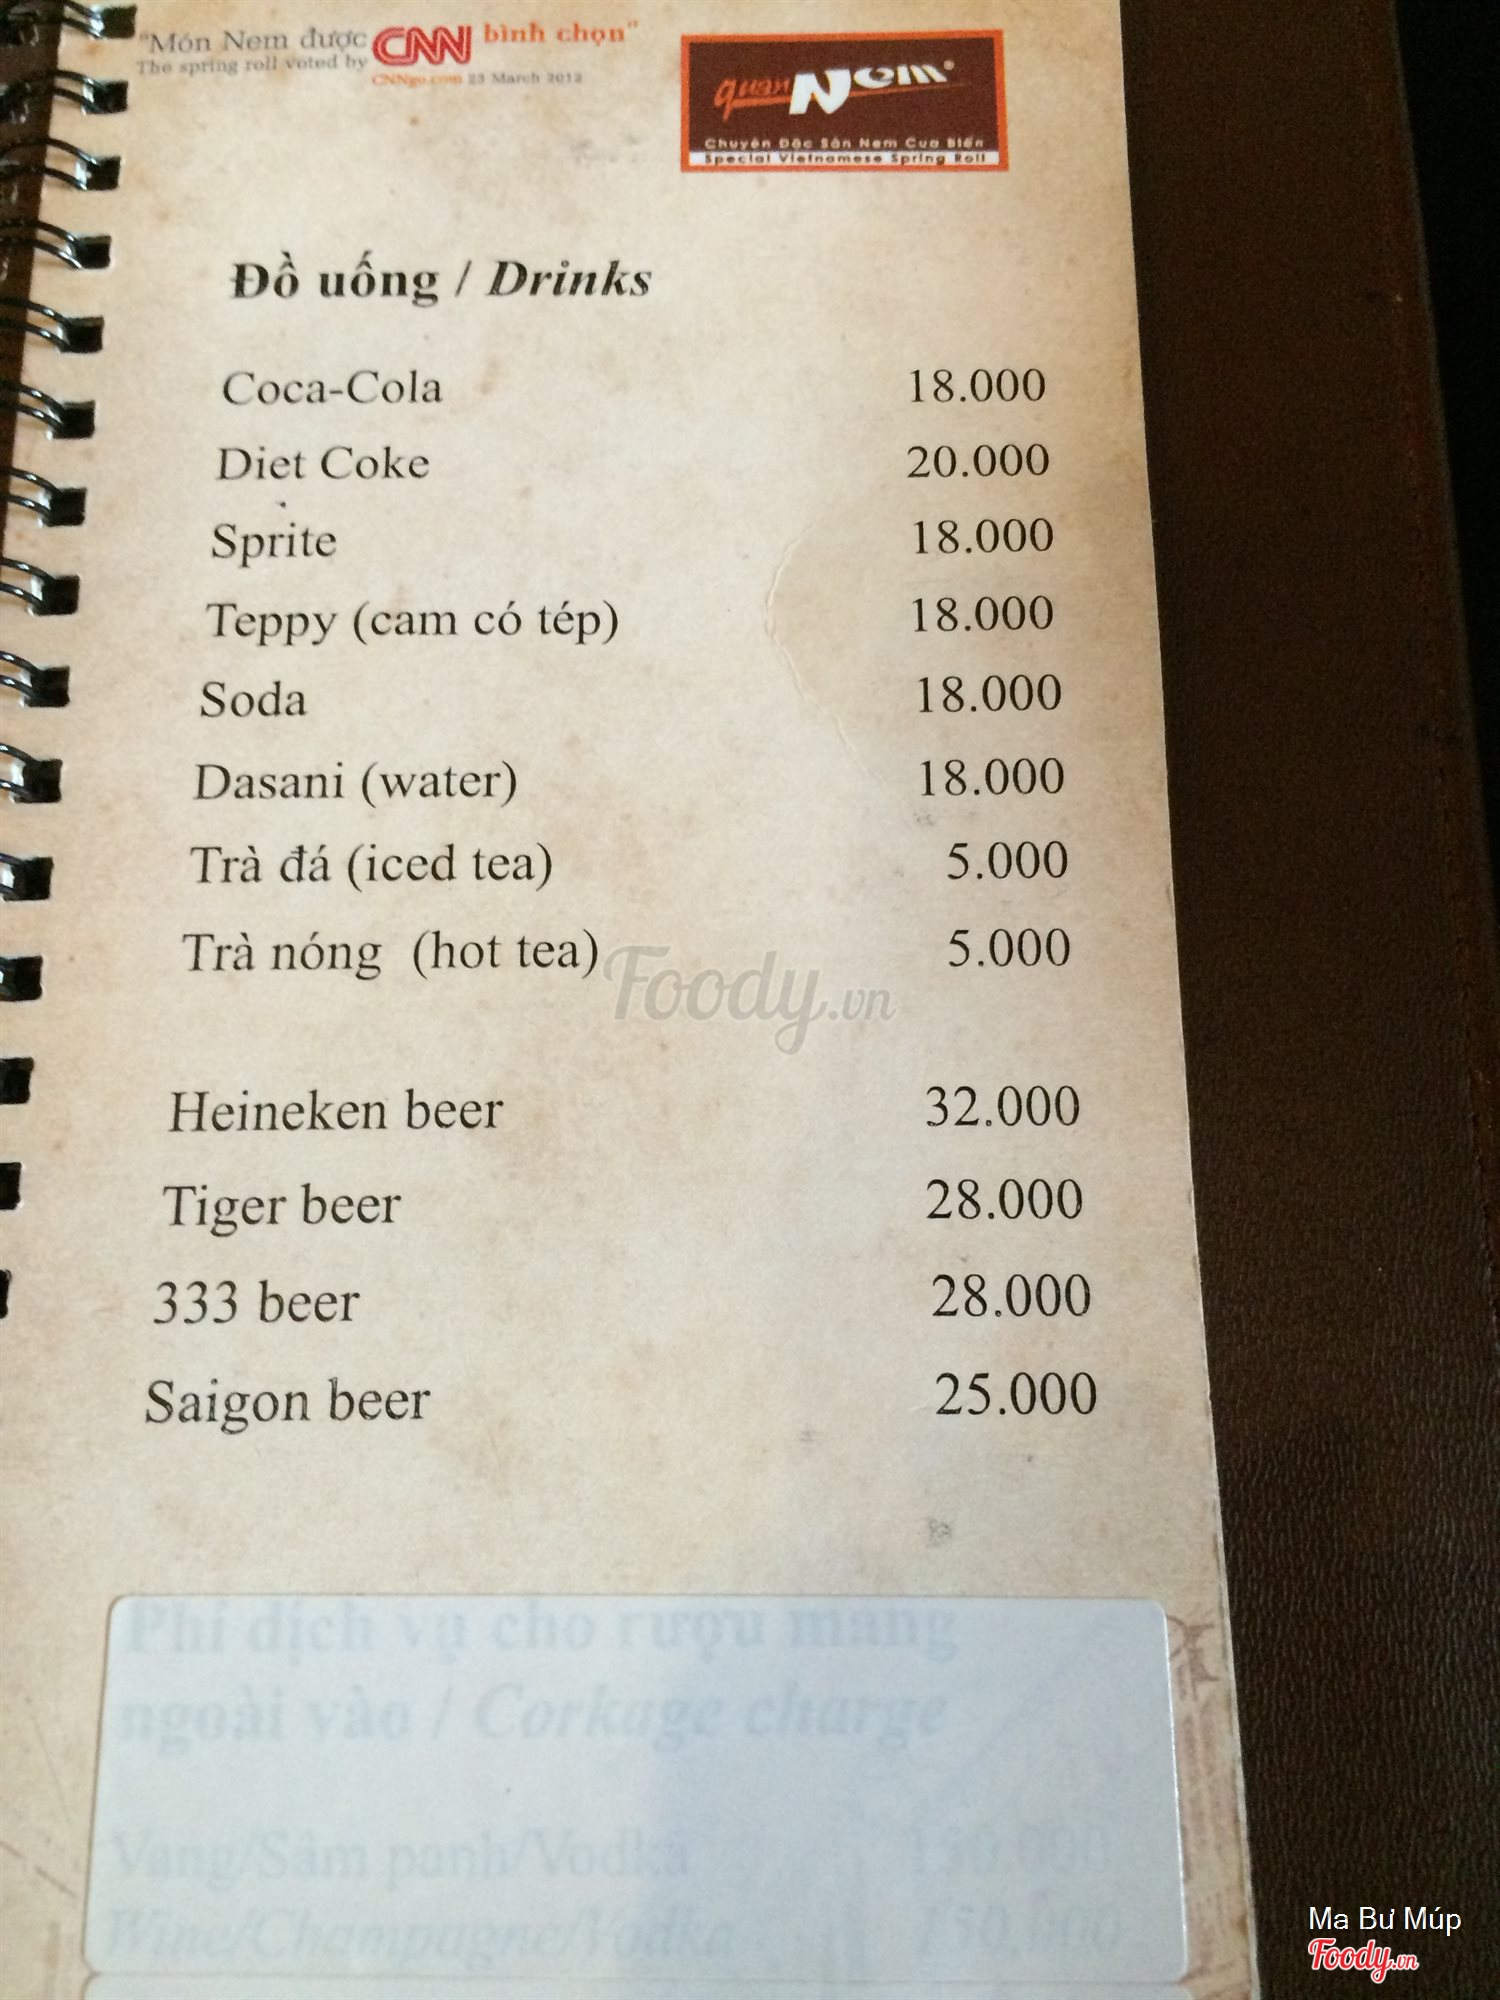 "Món Nem được CNN bình chọn"
The spring roll voted by
CNNgo.com 23 March 2012
quán Nem®
Chuyên Đặc Sản Nem Cua Biển
Special Vietnamese Spring Roll
Đồ uống / Drinks
Coca-Cola 18.000
Diet Coke 20.000
Sprite 18.000
Teppy (cam có tép) 18.000
Soda 18.000
Dasani (water) 18.000
Trà đá (iced tea) 5.000
Trà nóng (hot tea) 5.000
Foody.vn
Heineken beer 32.000
Tiger beer 28.000
333 beer 28.000
Saigon beer 25.000
Phí dịch vụ cho rượu mang
ngoài vào / Corkage charge
Vang/Sâm panh/Vodka 150.000
Wine/Champagne/Vodka
Ma Bư Múp
Foody.vn